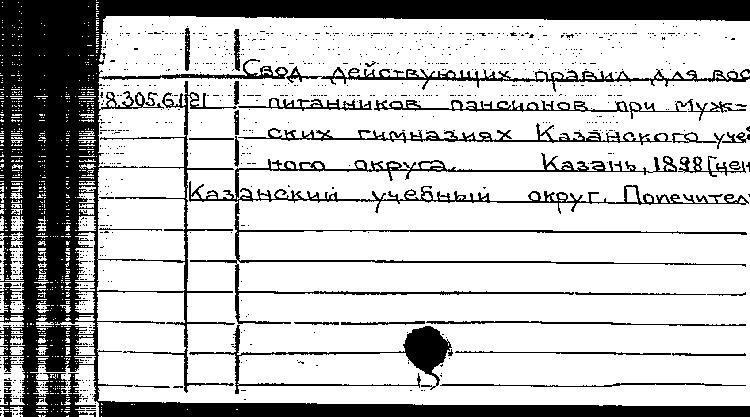 Свод действующих правил для вос
8.305.6.121 питанников пансионов при муж=
ских гимназиях Казанского учеб
ного округа. Казань, 1898 [цен
Казанский учебный округ. Попечитель